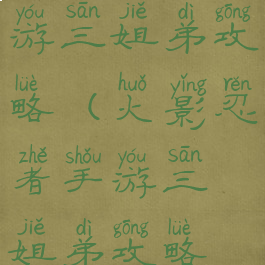 yóu sān jiě dì gōng
游三姐弟攻
lüè huǒ yǐng rěn
略（火影忍
zhě shǒu yóu sān
者手游三
jiě dì gōng lüè
姐弟攻略